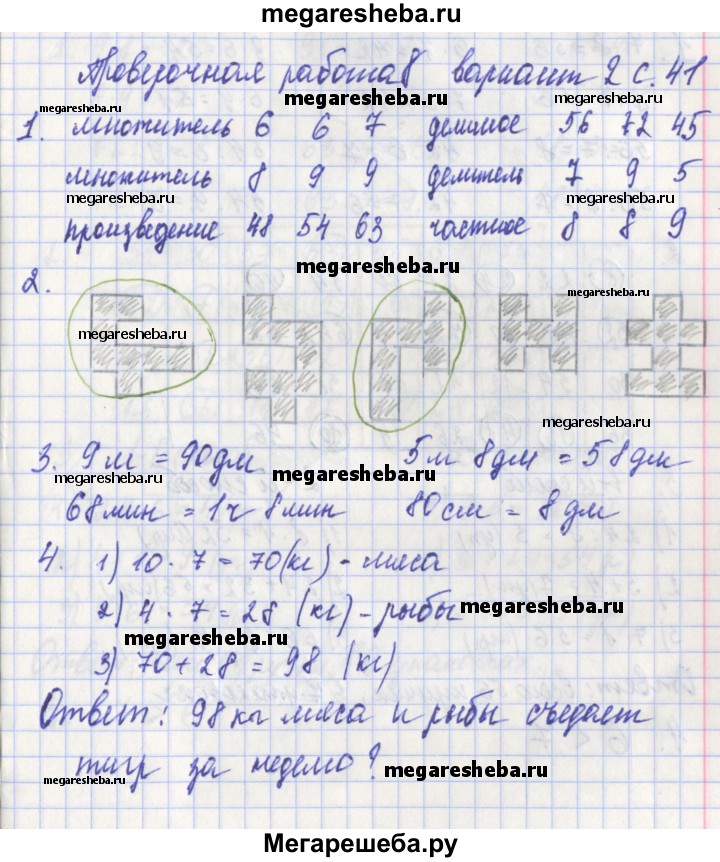 megaresheba.ru
Проверочная работа 8 вариант 2 с. 41
megaresheba.ru megaresheba.ru megaresheba.ru
1. множитель 6 6 7 делимое 56 72 45
множитель 8 9 9 делитель 7 9 5
megaresheba.ru megaresheba.ru
произведение 48 54 63 частное 8 8 9
megaresheba.ru
2.
megaresheba.ru
megaresheba.ru
megaresheba.ru
3. 9 м = 90 дм 5 м 8 дм = 58 дм
megaresheba.ru megaresheba.ru megaresheba.ru
68 мин = 1 ч 8 мин 80 см = 8 дм
4. 1) 10 · 7 = 70 (кг) - мяса
2) 4 · 7 = 28 (кг) - рыбы
megaresheba.ru
megaresheba.ru
3) 70 + 28 = 98 (кг)
Ответ: 98 кг мяса и рыбы съедает
тигр за неделю?
megaresheba.ru megaresheba.ru
Мегарешеба.ру